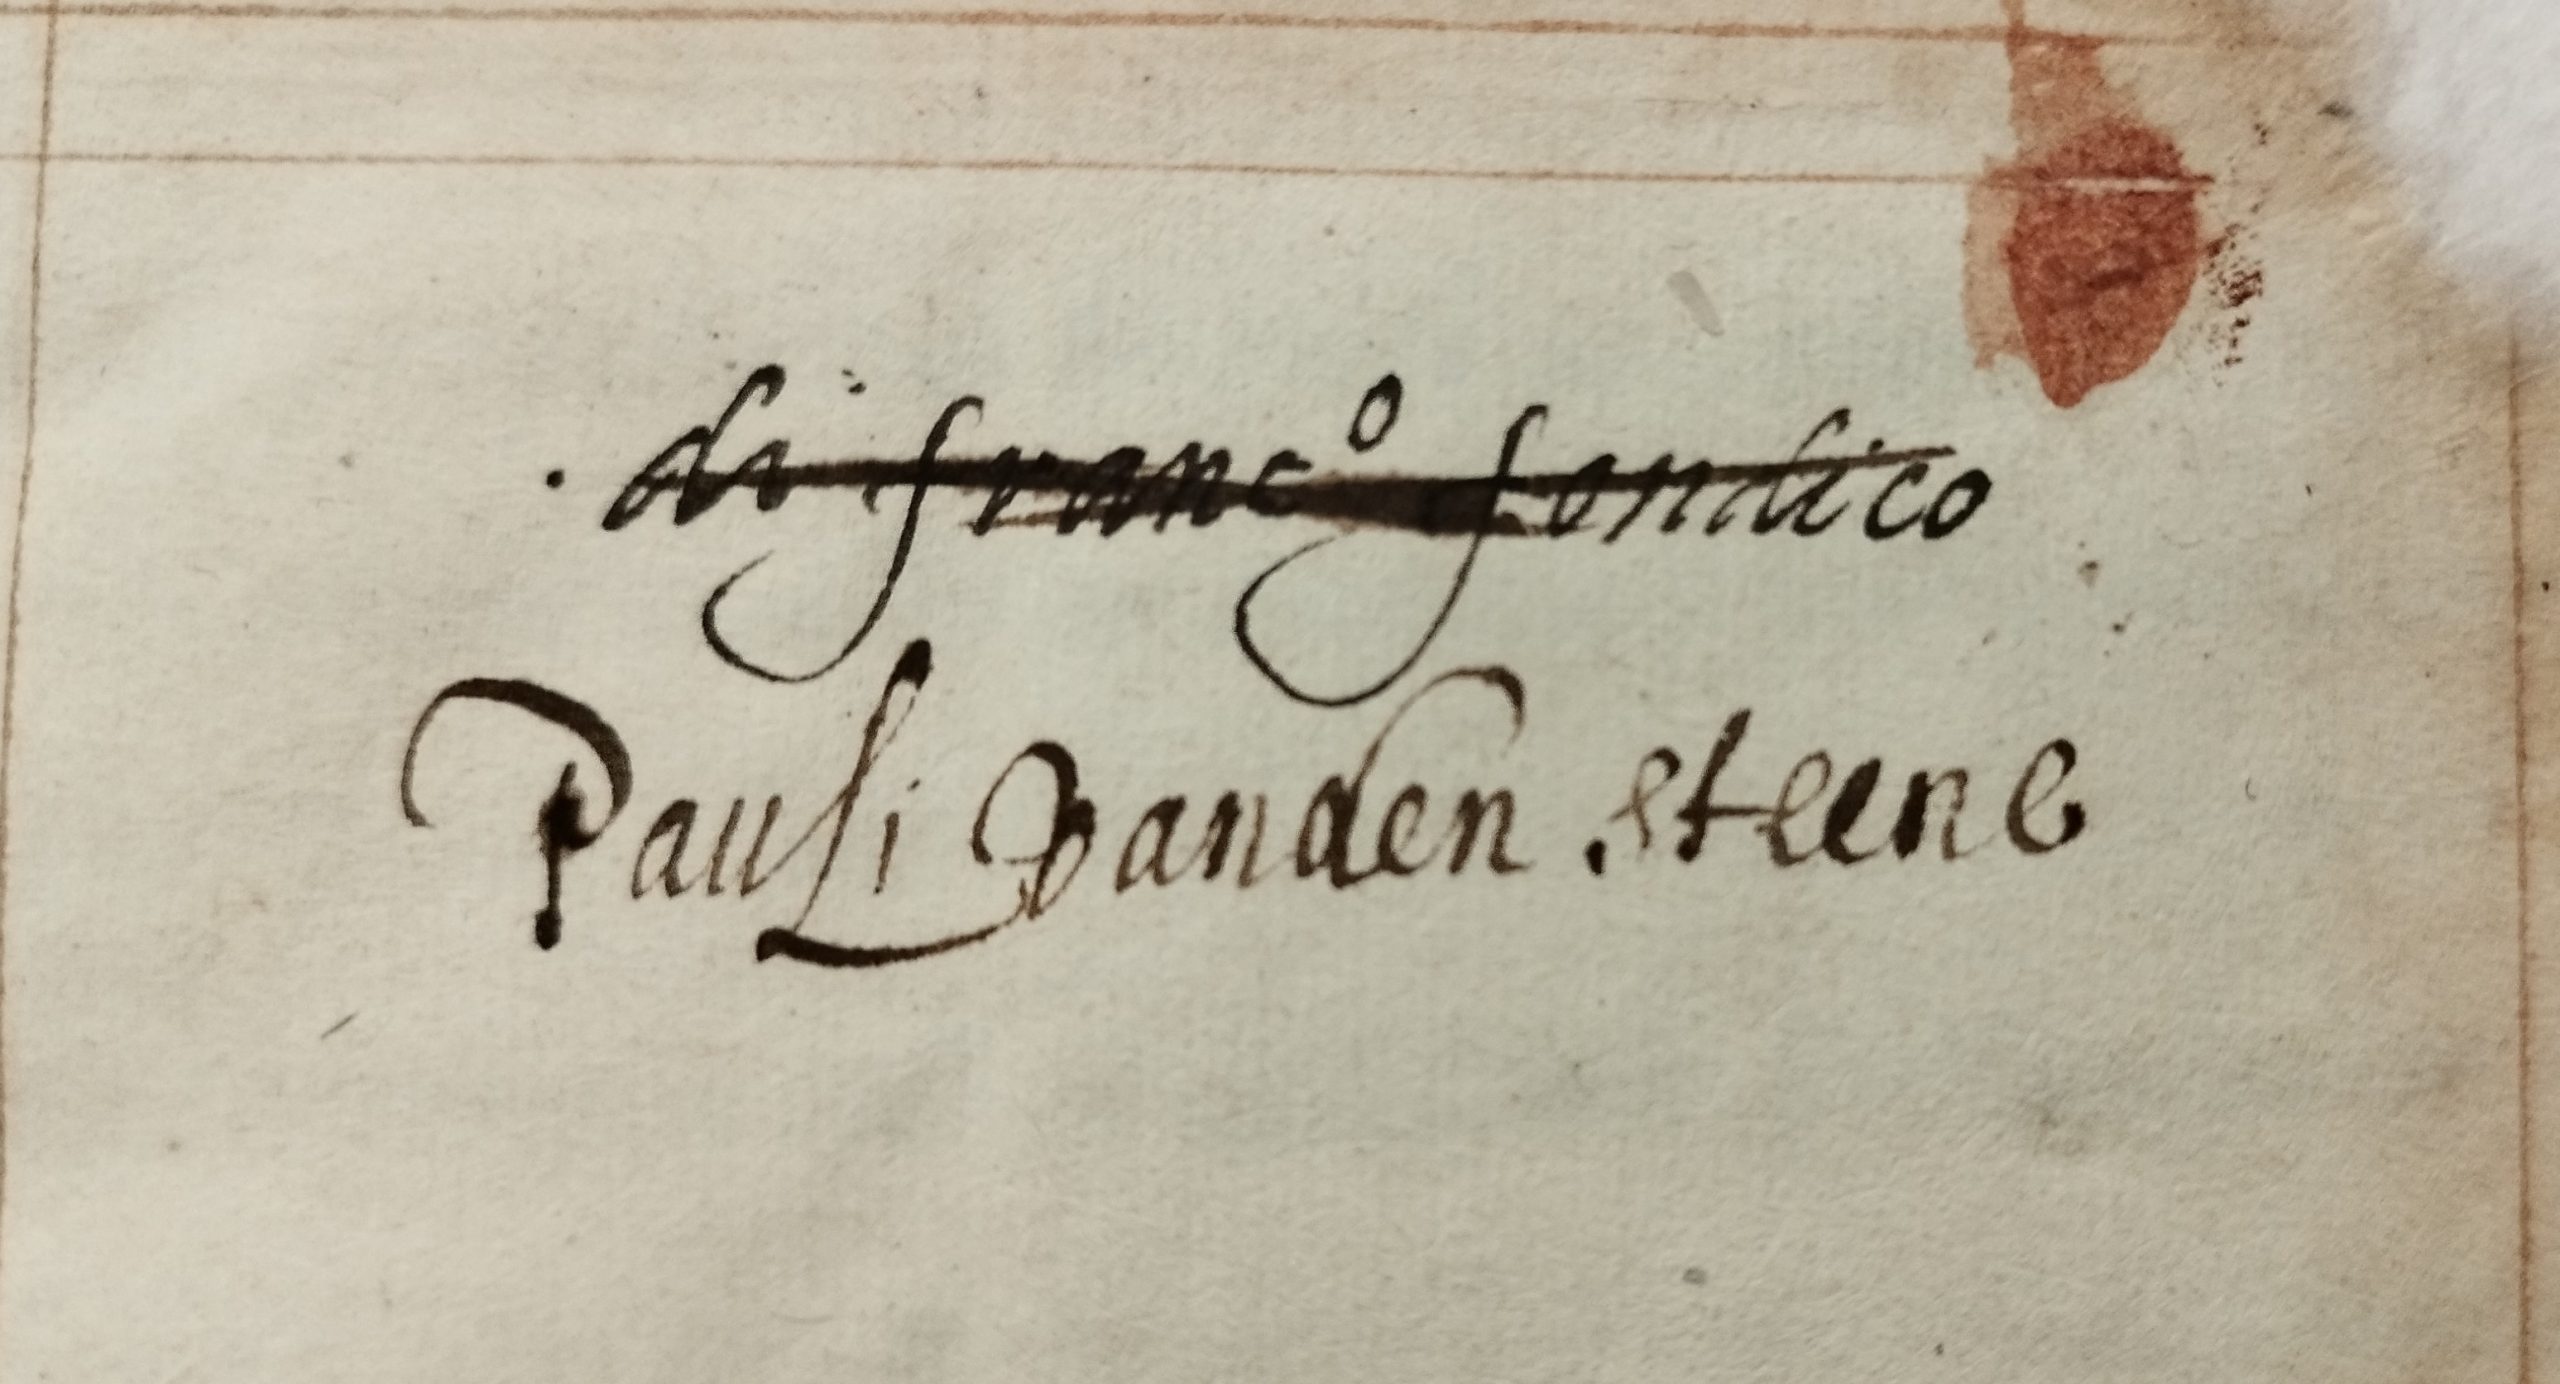 . di franc⁰ fondico
Pauli Vanden steene